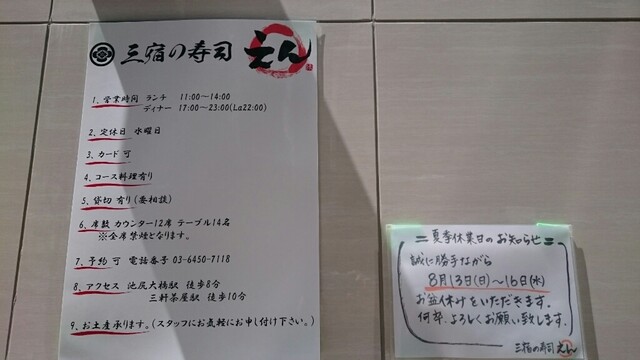 三宿の寿司 えん
1、営業時間 ランチ 11:00～14:00
ディナー 17:00～23:00(La22:00)
2、定休日 水曜日
3、カード 可
4、コース料理有り
5、貸切 有り(要相談)
6、席数 カウンター12席 テーブル14名
※全席禁煙となります。
7、予約 可 電話番号 03-6450-7118
8、アクセス 池尻大橋駅 徒歩8分
三軒茶屋駅 徒歩10分
9、お土産承ります。(スタッフにお気軽にお申し付け下さい。)
夏季休業日のお知らせ
誠に勝手ながら
8月13日(日)～16日(水)
お盆休みをいただきます。
何卒、よろしくお願い致します。
三宿の寿司 えん